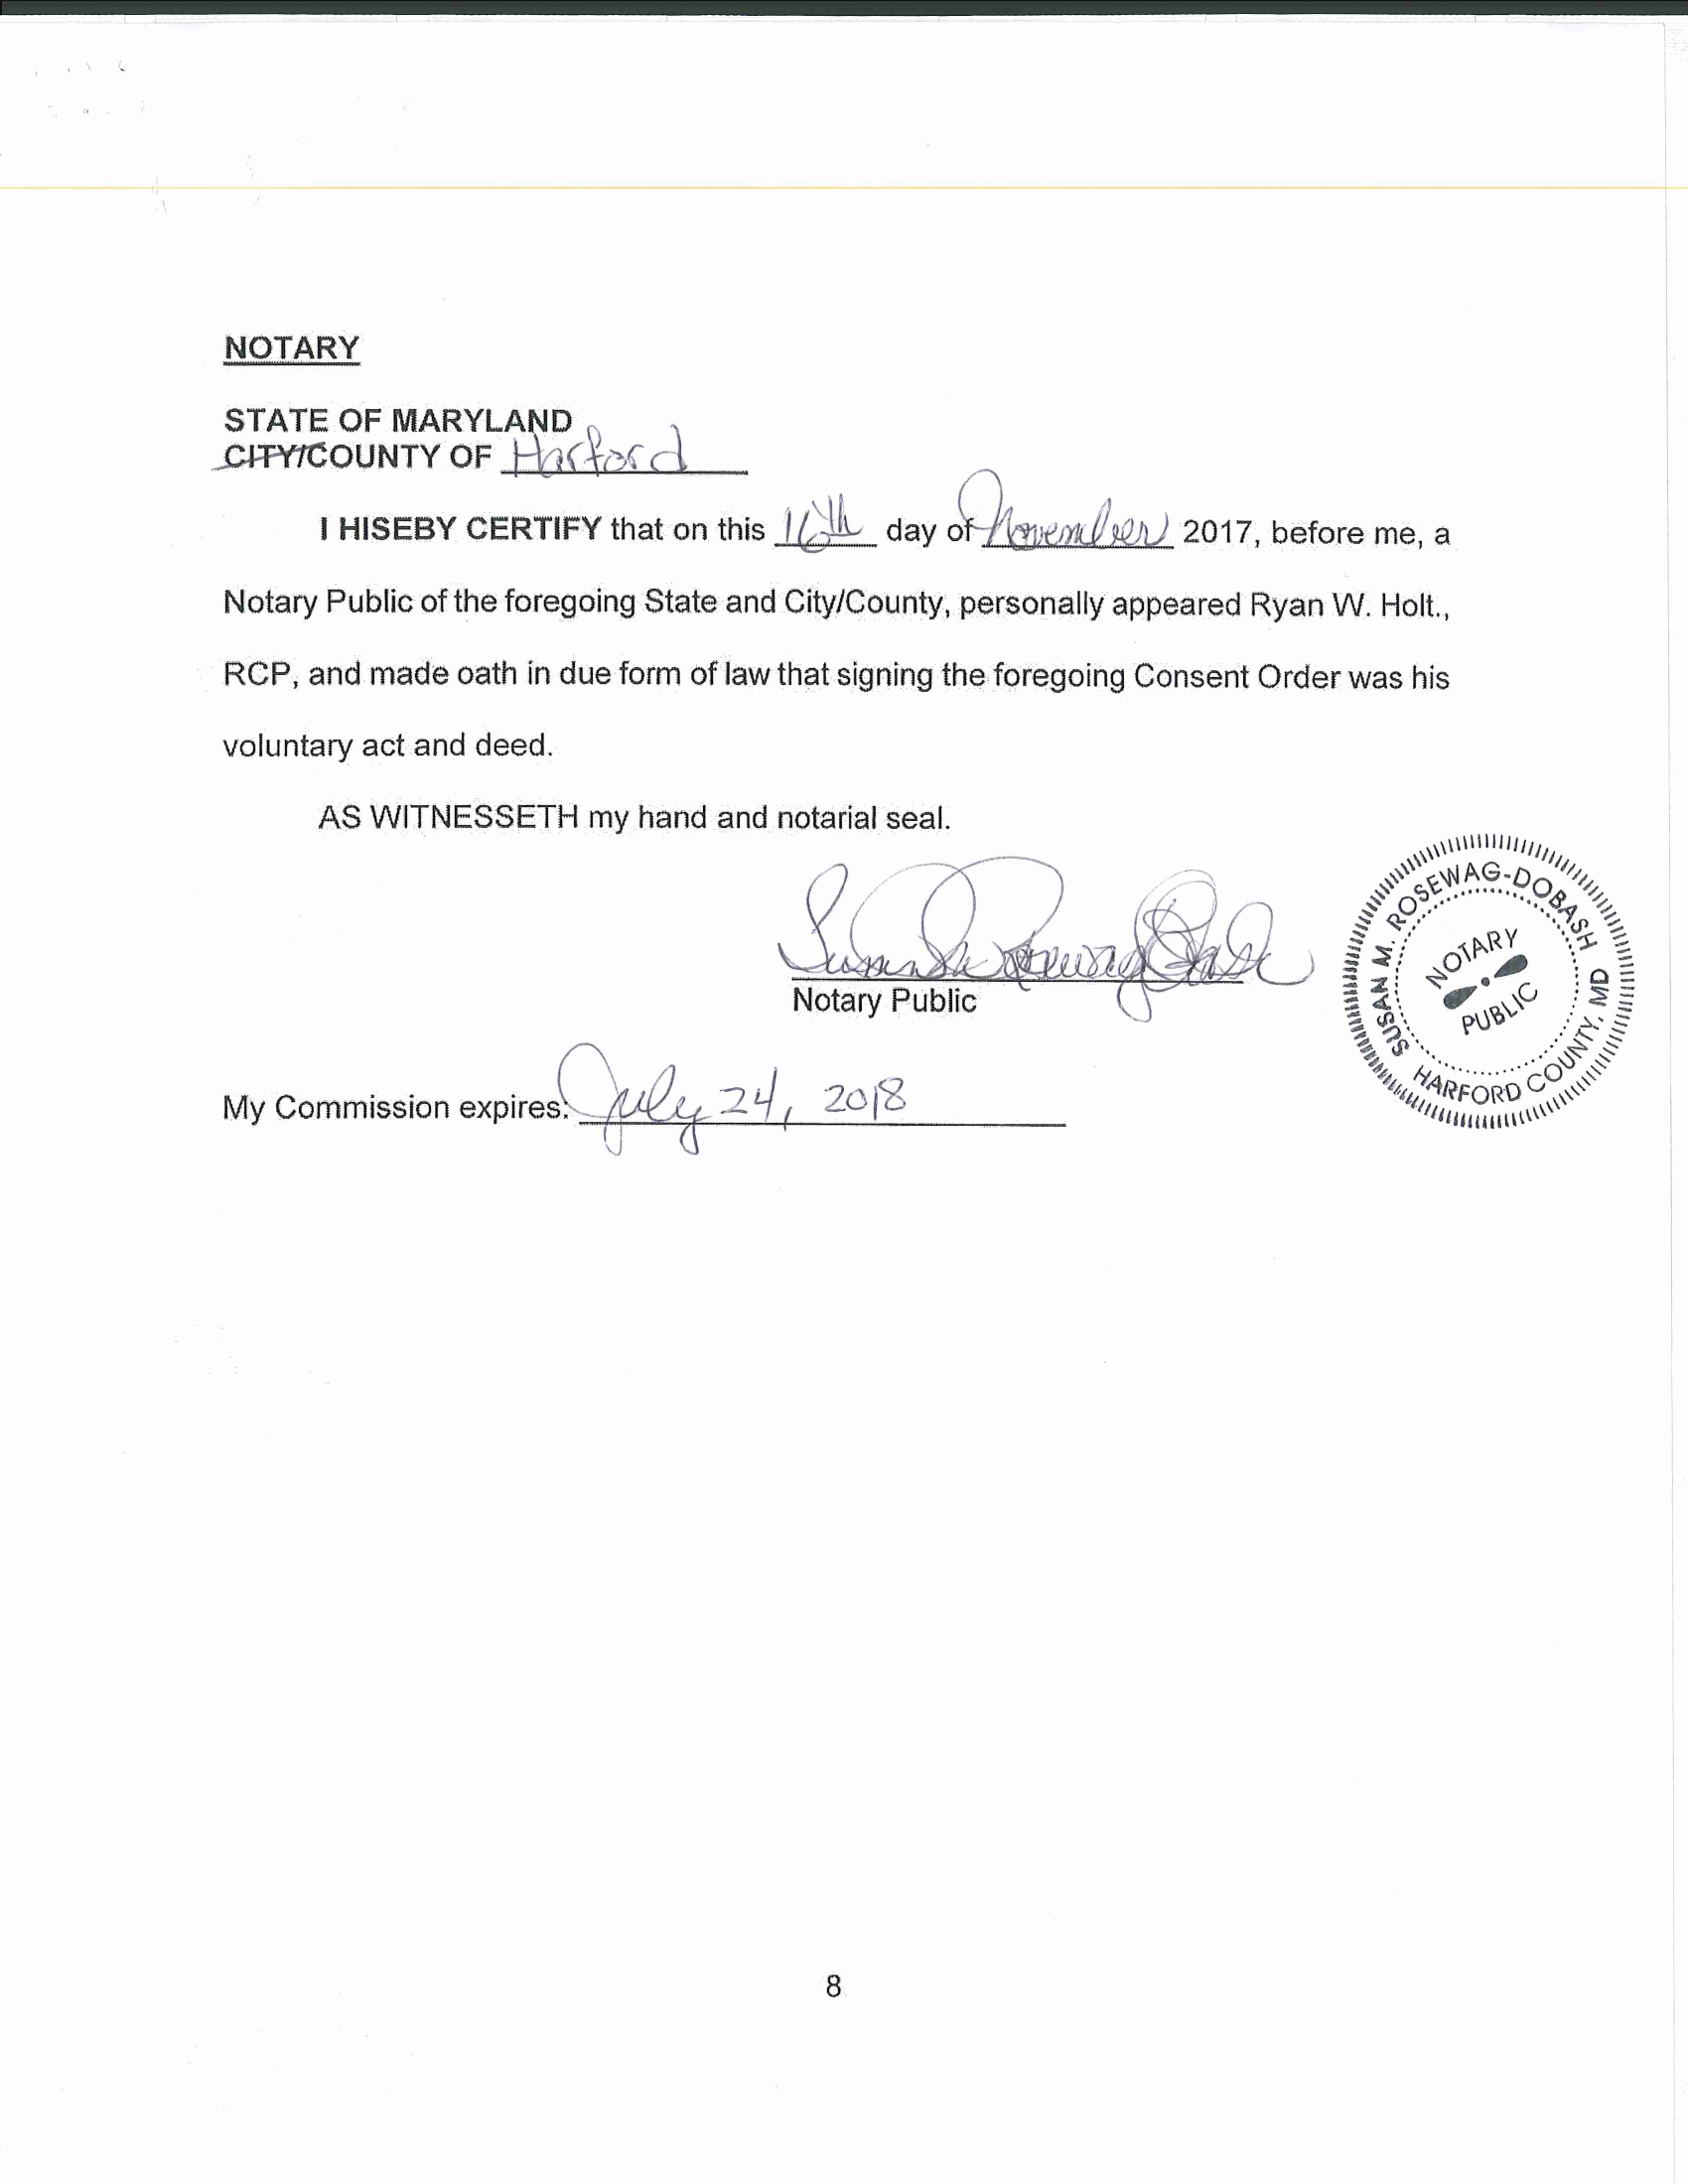 NOTARY
STATE OF MARYLAND
CITY/COUNTY OF Harford
I HISEBY CERTIFY that on this 16th day of November 2017, before me, a
Notary Public of the foregoing State and City/County, personally appeared Ryan W. Holt.,
RCP, and made oath in due form of law that signing the foregoing Consent Order was his
voluntary act and deed.
AS WITNESSETH my hand and notarial seal.
Notary Public
SUSAN M. ROSEWAG-DOBASH
NOTARY
PUBLIC
HARFORD COUNTY, MD
My Commission expires: July 24, 2018
8